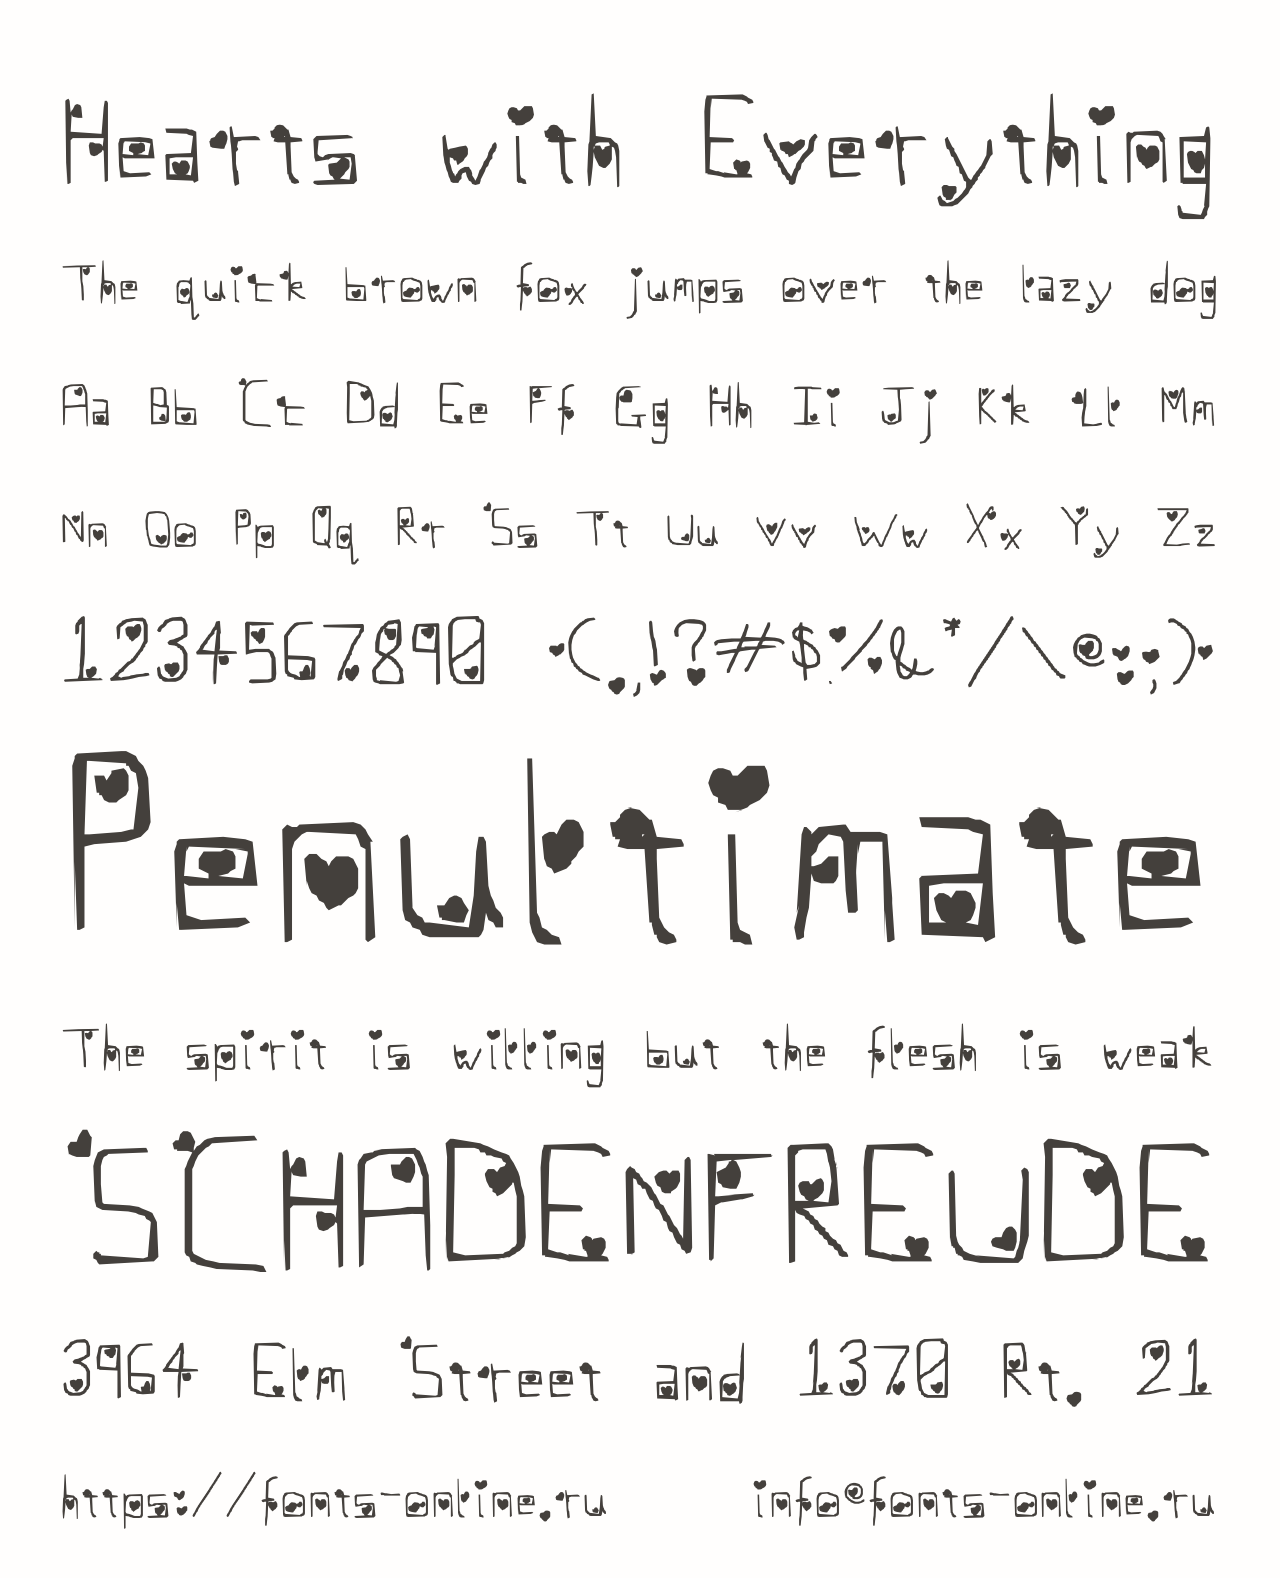 Hearts with Everything
The quick brown fox jumps over the lazy dog
Aa Bb Cc Dd Ee Ff Gg Hh Ii Jj Kk Ll Mm
Nn Oo Pp Qq Rr Ss Tt Uu Vv Ww Xx Yy Zz
1234567890 (.,!?#$%&*/\@:;)
Penultimate
The spirit is willing but the flesh is weak
SCHADENFREUDE
3964 Elm Street and 1370 Rt. 21
https://fonts-online.ru info@fonts-online.ru